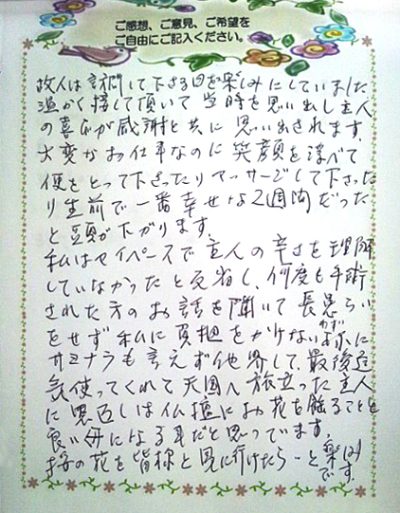 ご感想、ご意見、ご希望を
ご自由にご記入ください。
故人は訪問して下さる日を楽しみにしていました
温かく接して頂いて当時を思い出し主人
の喜びが感謝と共に思い出されます。
大変なお仕事なのに笑顔を浮べて
便をとって下さったりマッサージして下さった
り生前で一番幸せな2週間だった
と頭が下がります。
私はマイペースで主人の辛さを理解
していなかったと反省し、何度も手術
された方のお話を聞いて長患らい
をせず私に負担をかけないわずかに
サヨナラも言えず他界して、最後迄
気使ってくれて天国へ旅立った主人
に恩返しは仏壇にお花を飾ることと
良い母になる事だと思っています。
桜の花を皆様と見に行けたら…と楽しみ
です。